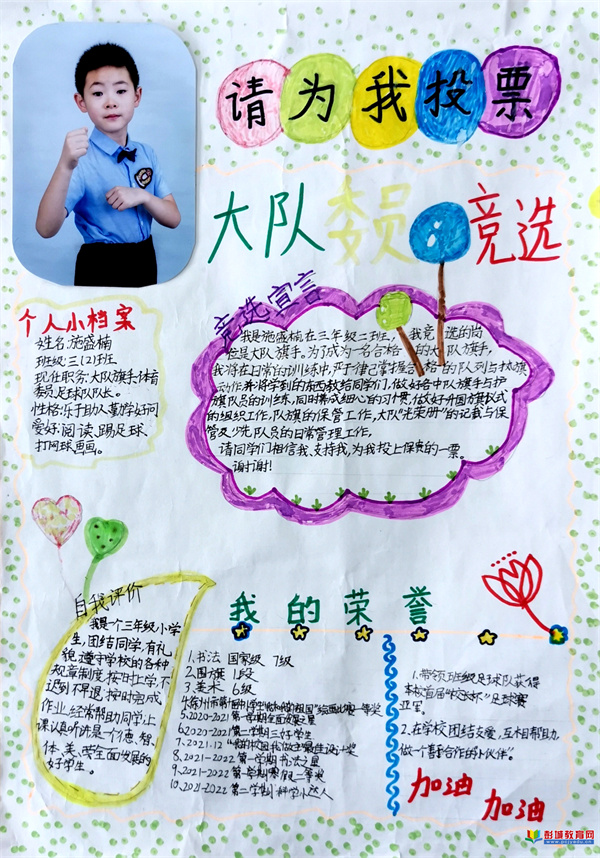 请为我投票
大队委员 竞选
竞选宣言
我是施盛楠,在三年级二班,我竞选的岗
位是大队旗手。为了成为一名合格的大队旗手,
我将在日常的训练中,严于律己掌握合格的队列与护旗
动作,并将学到的东西教给同学们,做好各中队旗手与护
旗队员的训练,同时养成细心的习惯,做好升国旗仪式
的组织工作,队旗的保管工作,大队"光荣册"的记载与保
管及少先队员的日常管理工作。
请同学们相信我、支持我,为我投上保贵的一票。
谢谢!
个人小档案
姓名:施盛楠
班级:三(2)班
现任职务:大队旗手、体育
委员、足球队队长。
性格:乐于助人、勤学好问
爱好:阅读、踢足球、
打网球、画画。
自我评价
我是一个三年级小学
生,团结同学,有礼
貌,遵守学校的各种
规章制度,按时上学,不
迟到不早退,按时完成
作业,经常帮助同学,上
课认真听讲,是一个德、智、
体、美、劳全面发展的
好学生。
我的荣誉
1.书法 国家级 7级
2.围棋 1段
3.美术 6级
绘画比赛一等奖
5.2020-2021 第一学期全面发展之星
6.2020-2021 第二学期三好学生
7.2021.12
8.2021-2022 第一学期 书法之星
9.2021-2022 第一学期寒假一等奖
10.2021-2022 第二学期 科学小达人
1.带领班级足球队获得
本校首届"校长杯"足球赛
亚军。
2.在学校团结友爱,互相帮助,
做一个"善于合作的小伙伴"。
加油 加油
彭城教育网
www.pcjyedu.cn